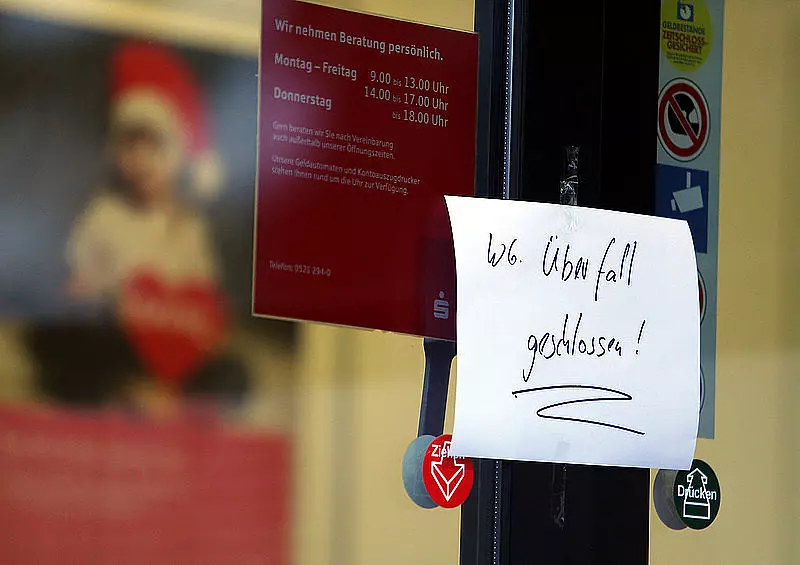 Wir nehmen Beratung persönlich.
Montag – Freitag 9.00 bis 13.00 Uhr
14.00 bis 17.00 Uhr
Donnerstag bis 18.00 Uhr
Gern beraten wir Sie nach Vereinbarung
auch außerhalb unserer Öffnungszeiten.
Unsere Geldautomaten und Kontoauszugdrucker
stehen Ihnen rund um die Uhr zur Verfügung.
Telefon: 0521 294-0
GELDBESTÄNDE
ZEITSCHLOSS-
GESICHERT
Wg. Überfall
geschlossen!
Ziehen
Drücken